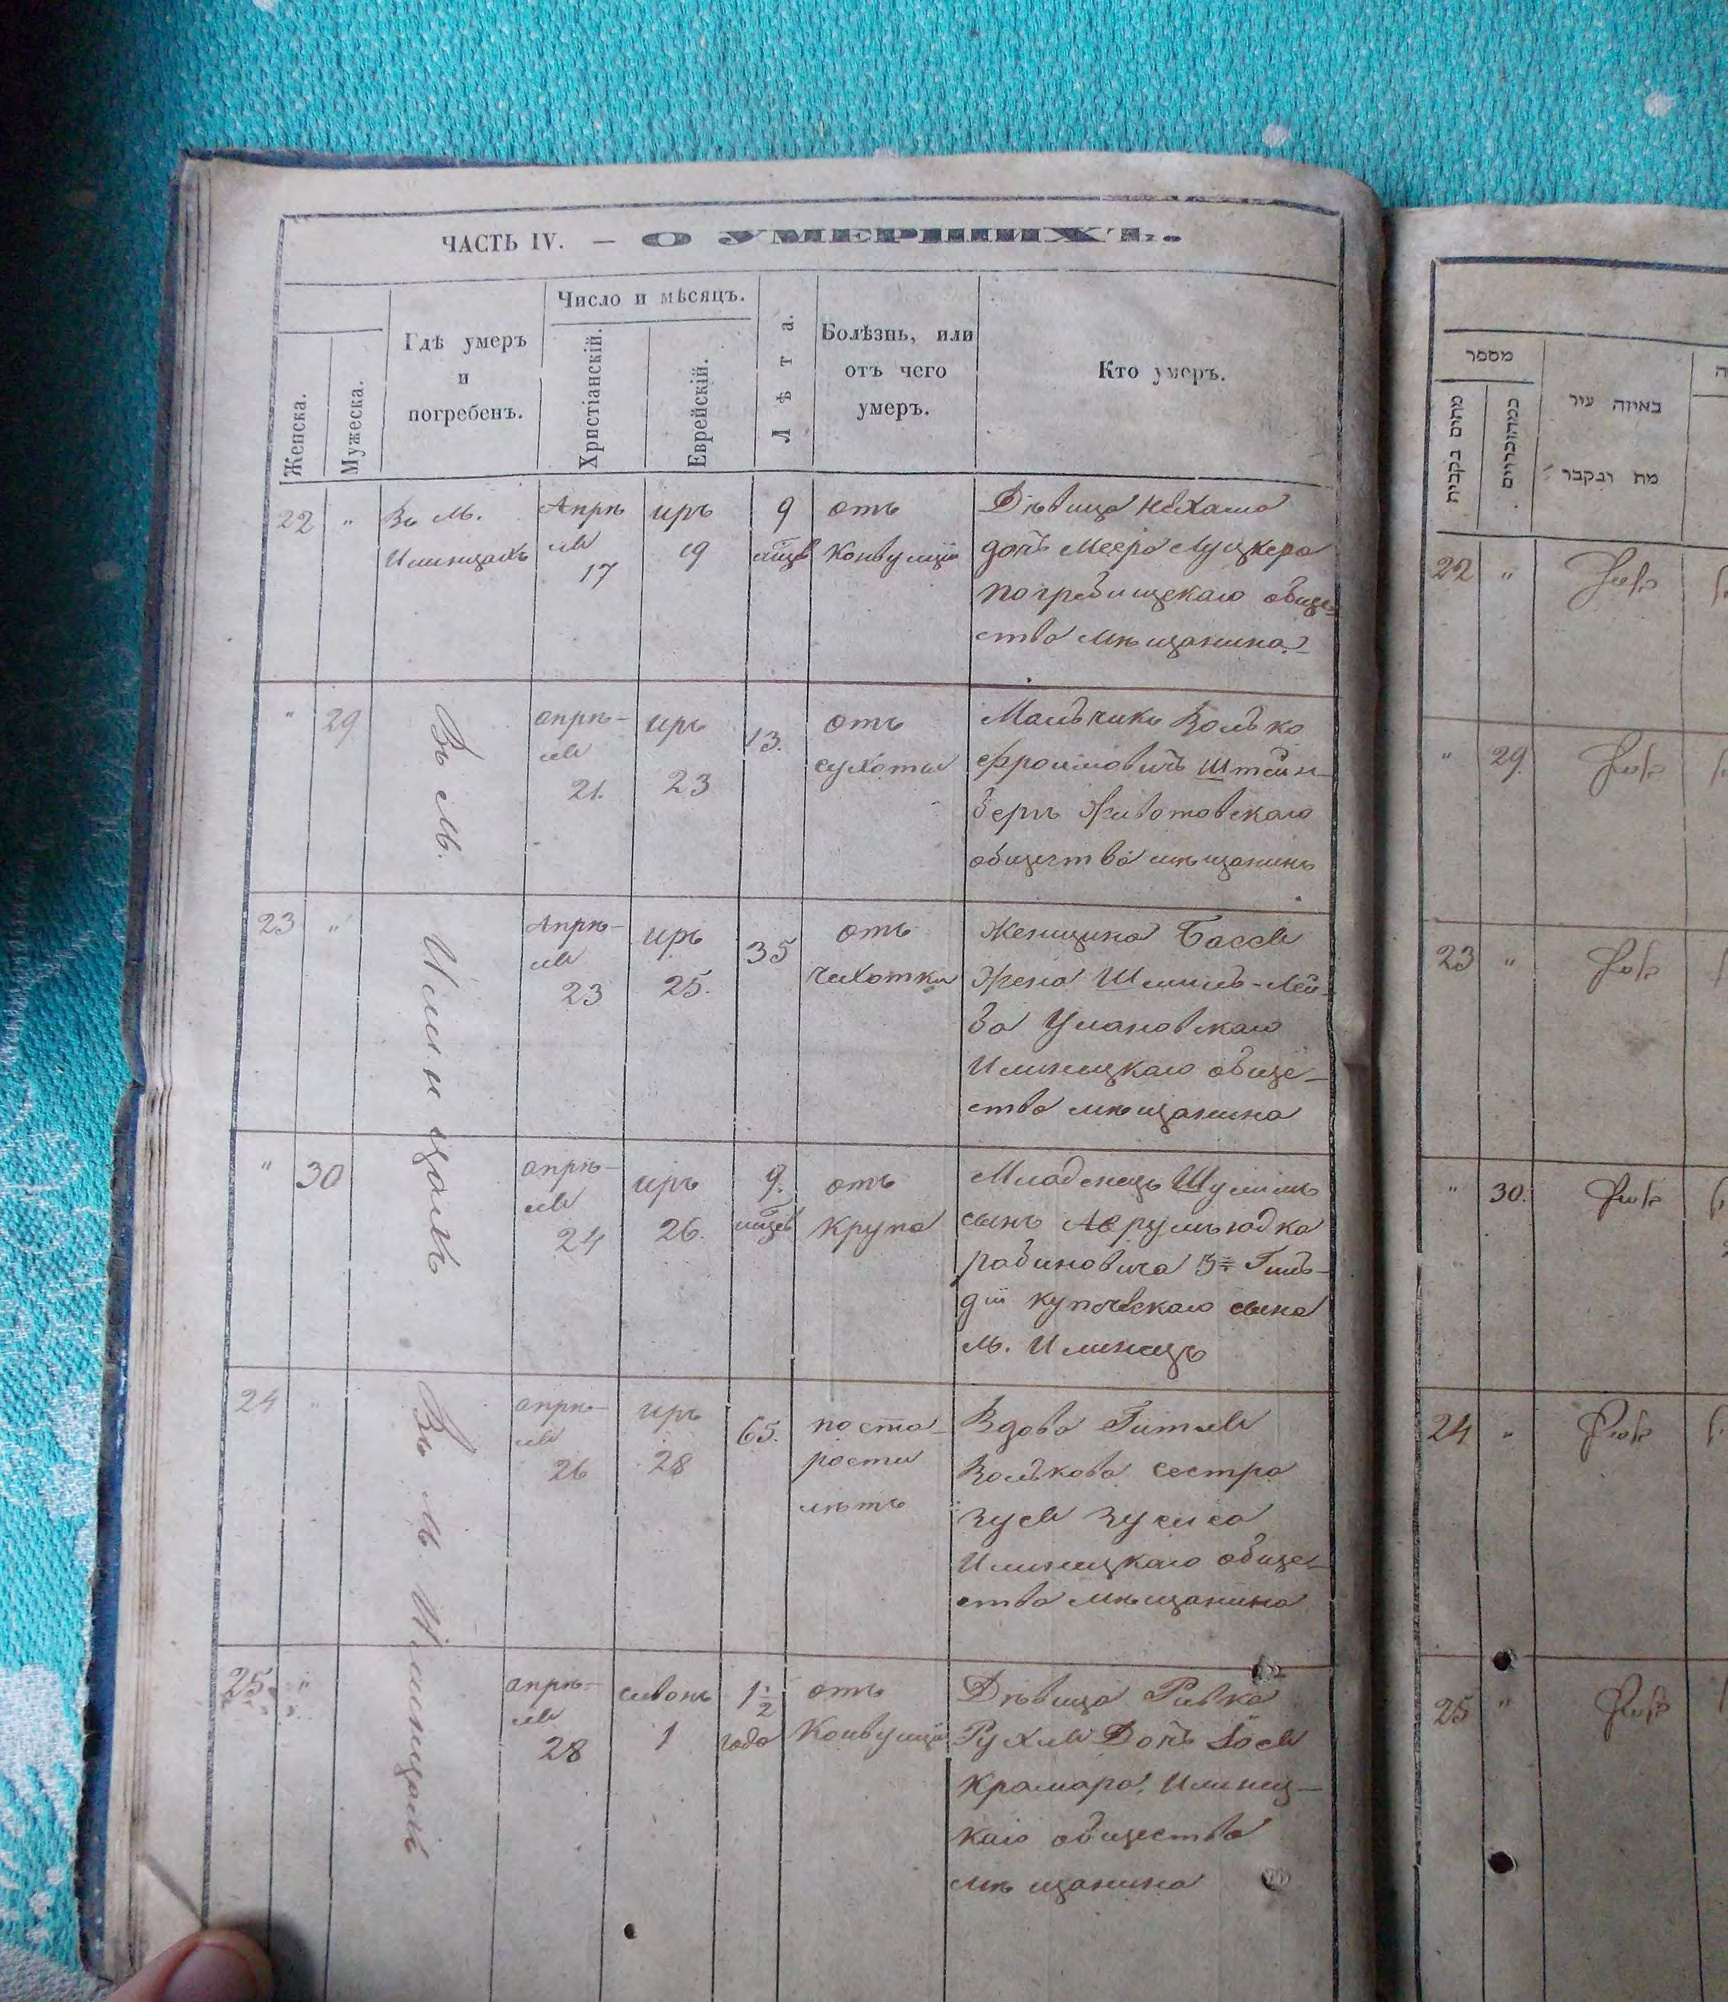 ЧАСТЬ IV. — О УМЕРШИХЪ.
Женска.
Мужеска.
Гдѣ умеръ
и
погребенъ.
Число и мѣсяцъ.
Христіанскій.
Еврейскій.
Лѣта.
Болѣзнь, или
отъ чего
умеръ.
Кто умеръ.
22 "
Въ м.
Илинцахъ
Апрѣ
ля
17
иръ
19
9
мѣцъ
отъ
Конвулціи
Дѣвица Нехама
дочь Меера Луцкера
погребищскаго обще-
ства мѣщанина
" 29
Въ м. Илинцахъ
апрѣ-
ля
21.
иръ
23
13.
отъ
сухоты
Мальчикъ Волько
Фроимовичъ Штейн-
бергъ Животовскаго
общества мѣщанинъ
23 "
Апрѣ-
ля
23
иръ
25.
35
отъ
чихотки
Женщина Бася
Жена Шмиль-Лей-
ба Улановскаго
Илинецкаго обще-
ства мѣщанина
" 30
апрѣ-
ля
24
иръ
26.
9.
отъ
крупа
Младенецъ Шулимъ
сынъ Аврумъ Юдка
рабиновича 3й Гиль-
діи купческаго сына
м. Илинецъ
24 "
Въ м. Илинцахъ
апрѣ-
ля
26
иръ
28
65.
по ста-
рости
лѣтъ
Вдова Гитля
Волькова сестра
Зуся Зусиса
Илинецкаго обще-
ства мѣщанина
25 "
апрѣ-
ля
28
сивонъ
1
1 1/2
года
отъ
Конвулціи
Дѣвица Ривка
Рухля Дочь Іося
Крамара, Илинец-
каго общества
мѣщанина
מספר
באיזה עיר
מת ונקבר
22 "
" 29.
23 "
" 30.
24 "
25 "